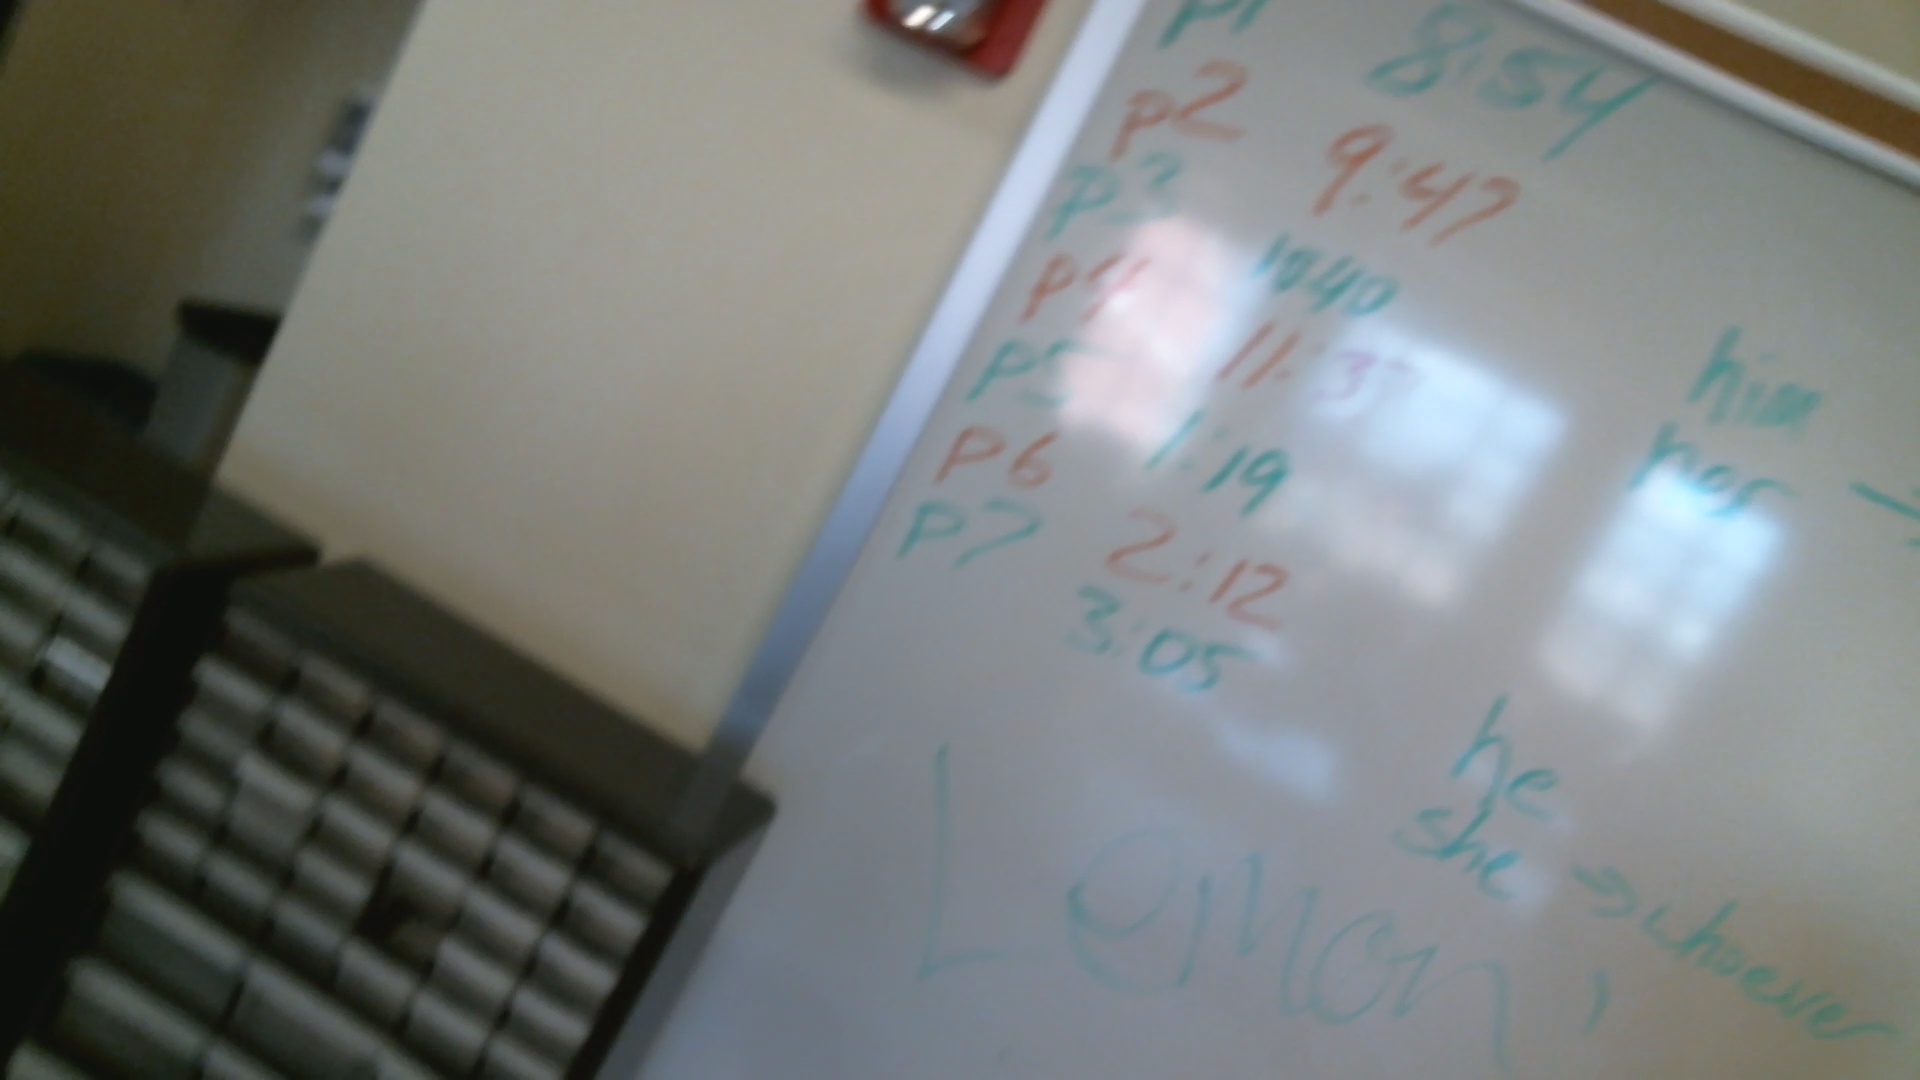 p1 8:54
p2 9:47
p3 10:40
p4 11:3
p5 1:19
p6 2:12
p7 3:05
him
her →
he
she → whoever
Lemon,